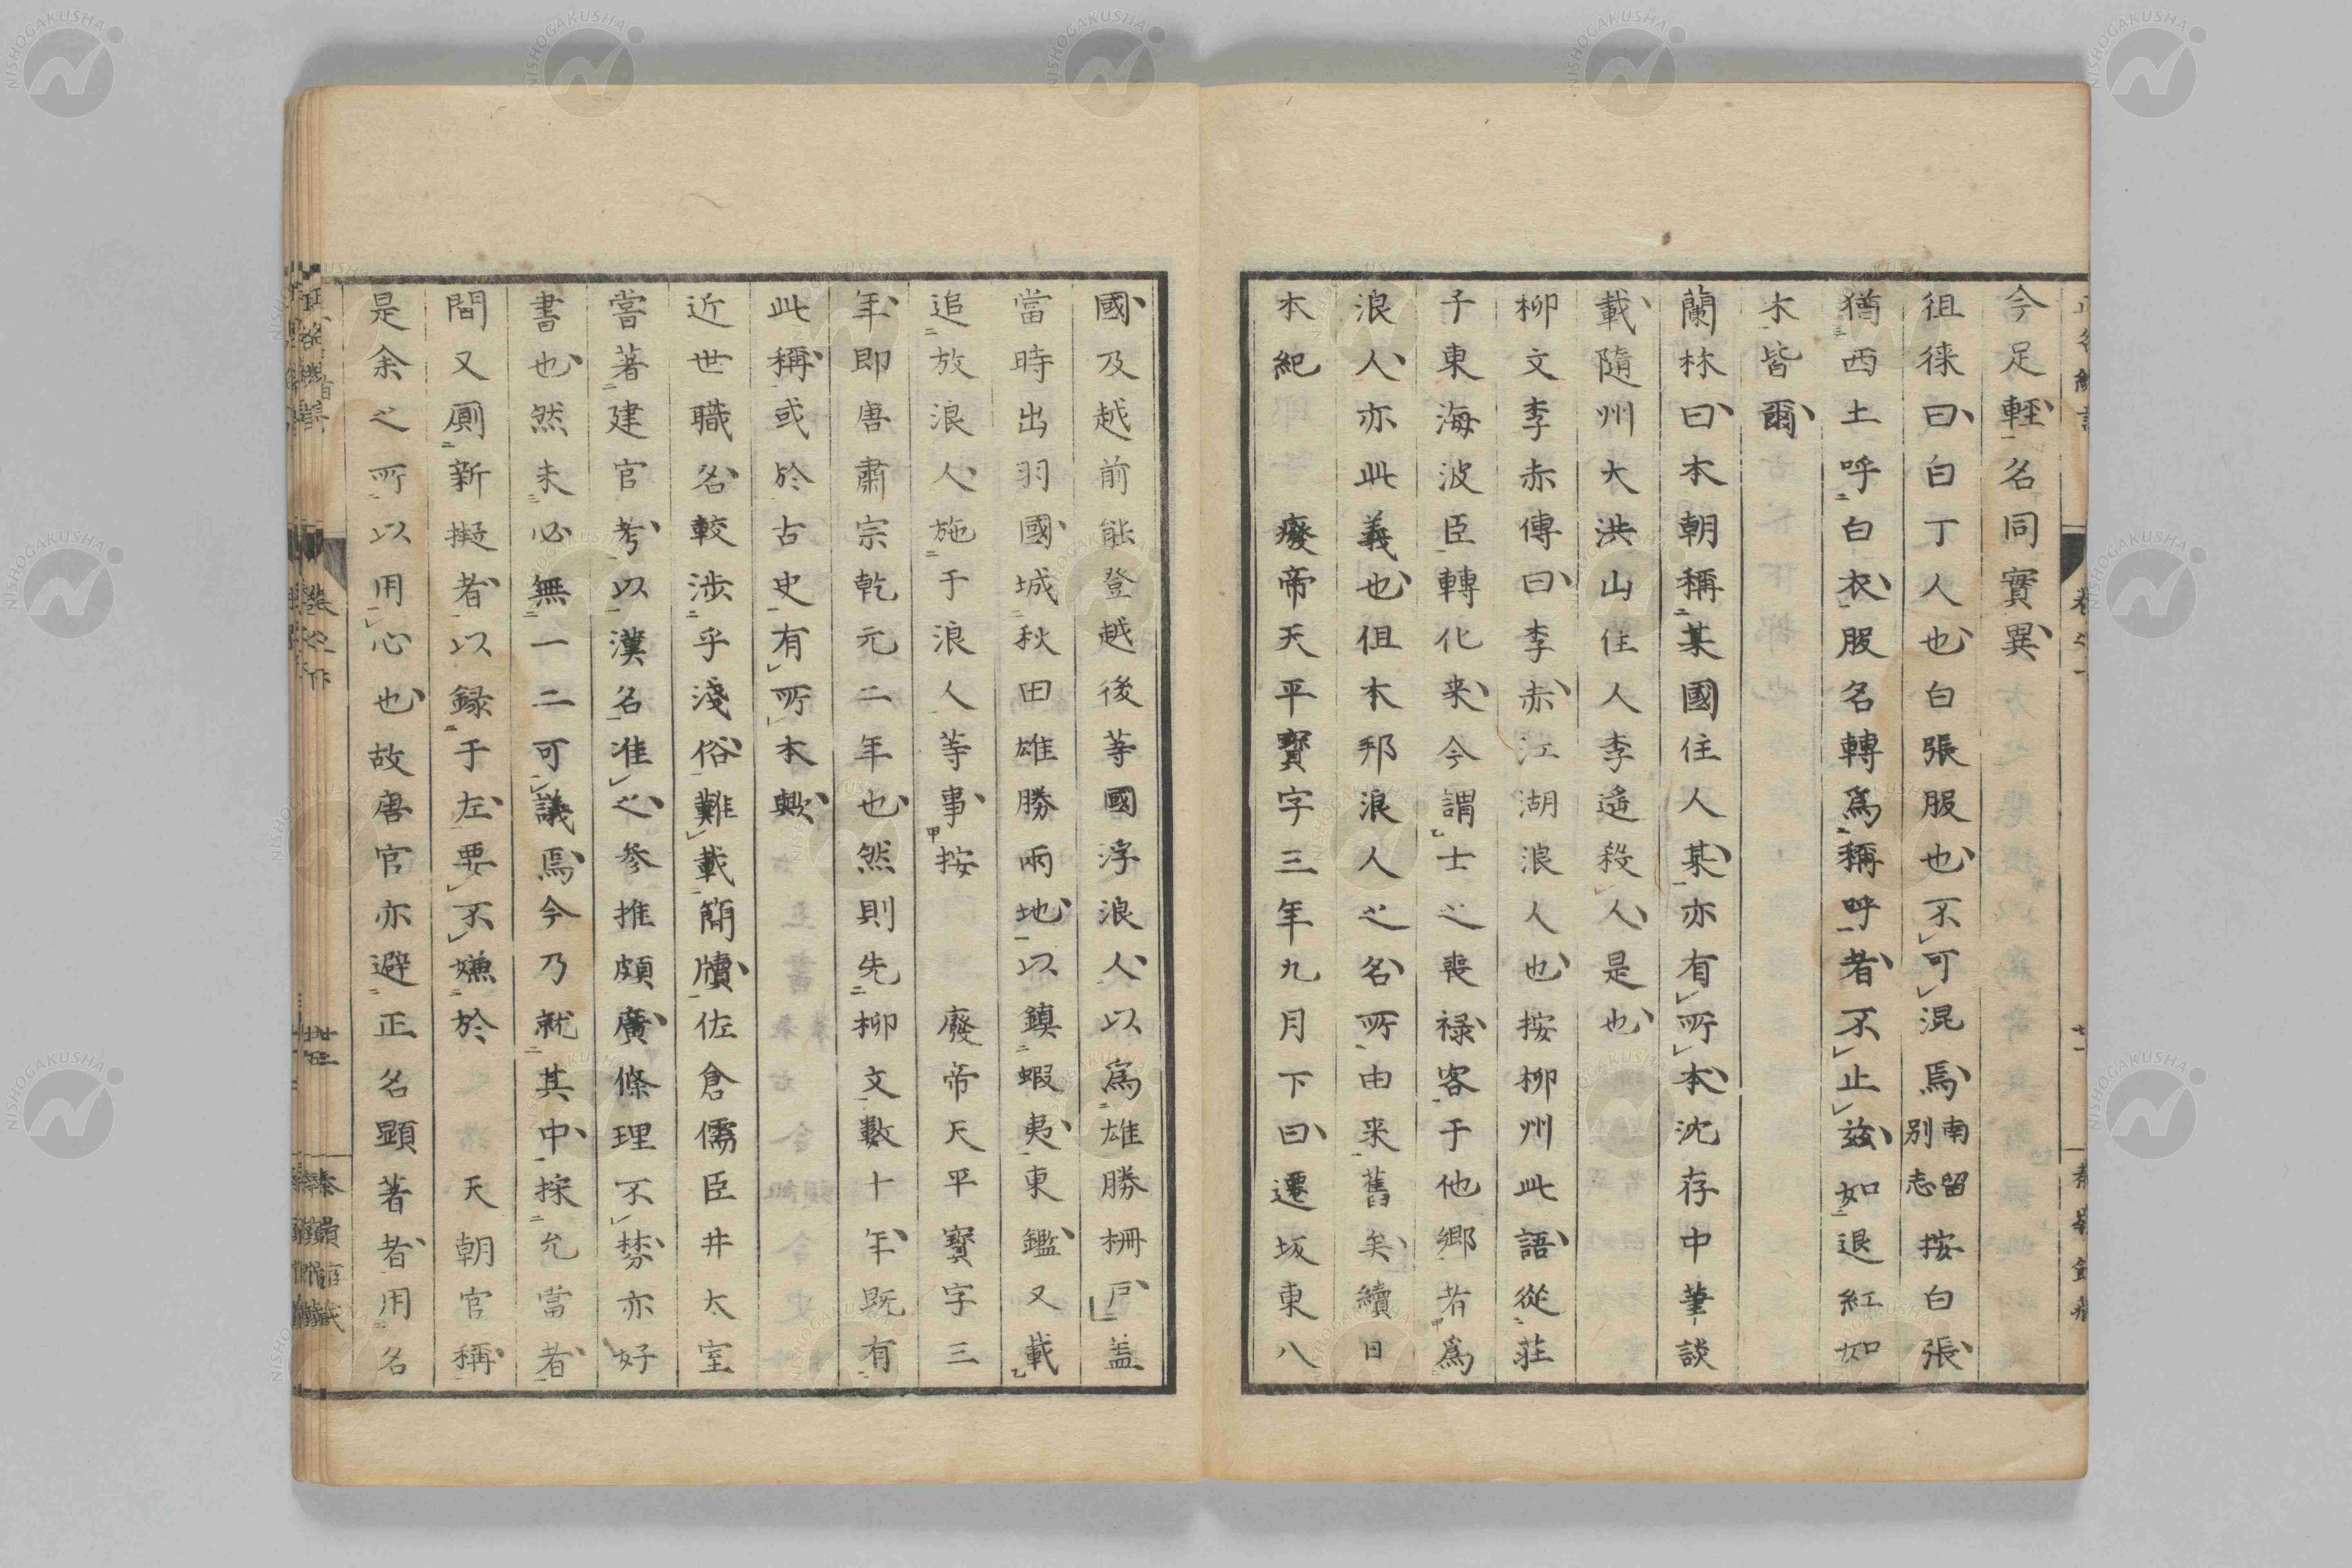 今足輕名同實異
徂徠曰白丁人也白張服也不可混焉南留別志按白張
猶西土呼白衣服名轉爲稱呼者不止玆如退紅如
木皆爾
蘭林曰本朝稱某國住人某亦有所本沈存中筆談
載隨州大洪山住人李遙殺人是也
柳文李赤傳曰李赤江湖浪人也按柳州此語從莊
子東海波臣轉化来今謂士之喪禄客于他鄉者爲
浪人亦此義也但本邦浪人之名所由来舊矣續日
本紀 廢帝天平寳字三年九月下曰遷坂東八
國及越前能登越後等國浮浪人以爲雄勝柵戸蓋
當時出羽國城秋田雄勝兩地以鎮蝦夷東鑑又載
追放浪人施于浪人等事按 廢帝天平寳字三
年即唐肅宗乾元二年也然則先柳文數十年既有
此稱或於古史有所本歟
近世職名較涉乎淺俗難載簡牘佐倉儒臣井太室
嘗著建官考以漢名准之參推頗廣條理不棼亦好
書也然未必無一二可議焉今乃就其中採允當者
間又厠新擬者以録于左要不嫌於 天朝官稱
是余之所以用心也故唐官亦避正名顕著者用名
NISHOGAKUSHA